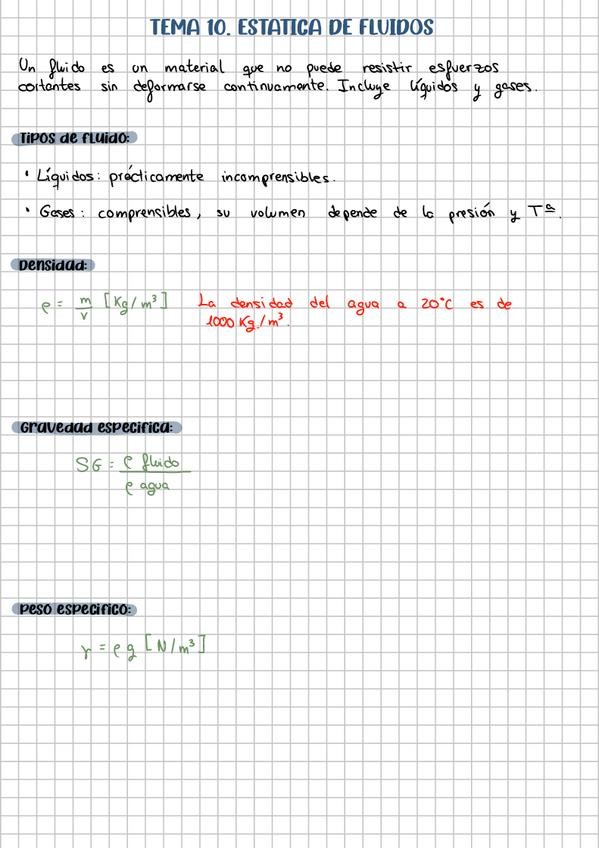 TEMA 10. ESTATICA DE FLUIDOS
Un fluido es un material que no puede resistir esfuerzos
cortantes sin deformarse continuamente. Incluye líquidos y gases.
Tipos de fluido:
• Líquidos: prácticamente incomprensibles.
• Gases: comprensibles, su volumen depende de la presión y Tª.
Densidad:
ρ = m/v [Kg/m³] La densidad del agua a 20°C es de
1000 Kg/m³.
Gravedad especifica:
SG = ρ fluido
ρ agua
Peso especifico:
γ = ρ g [N/m³]